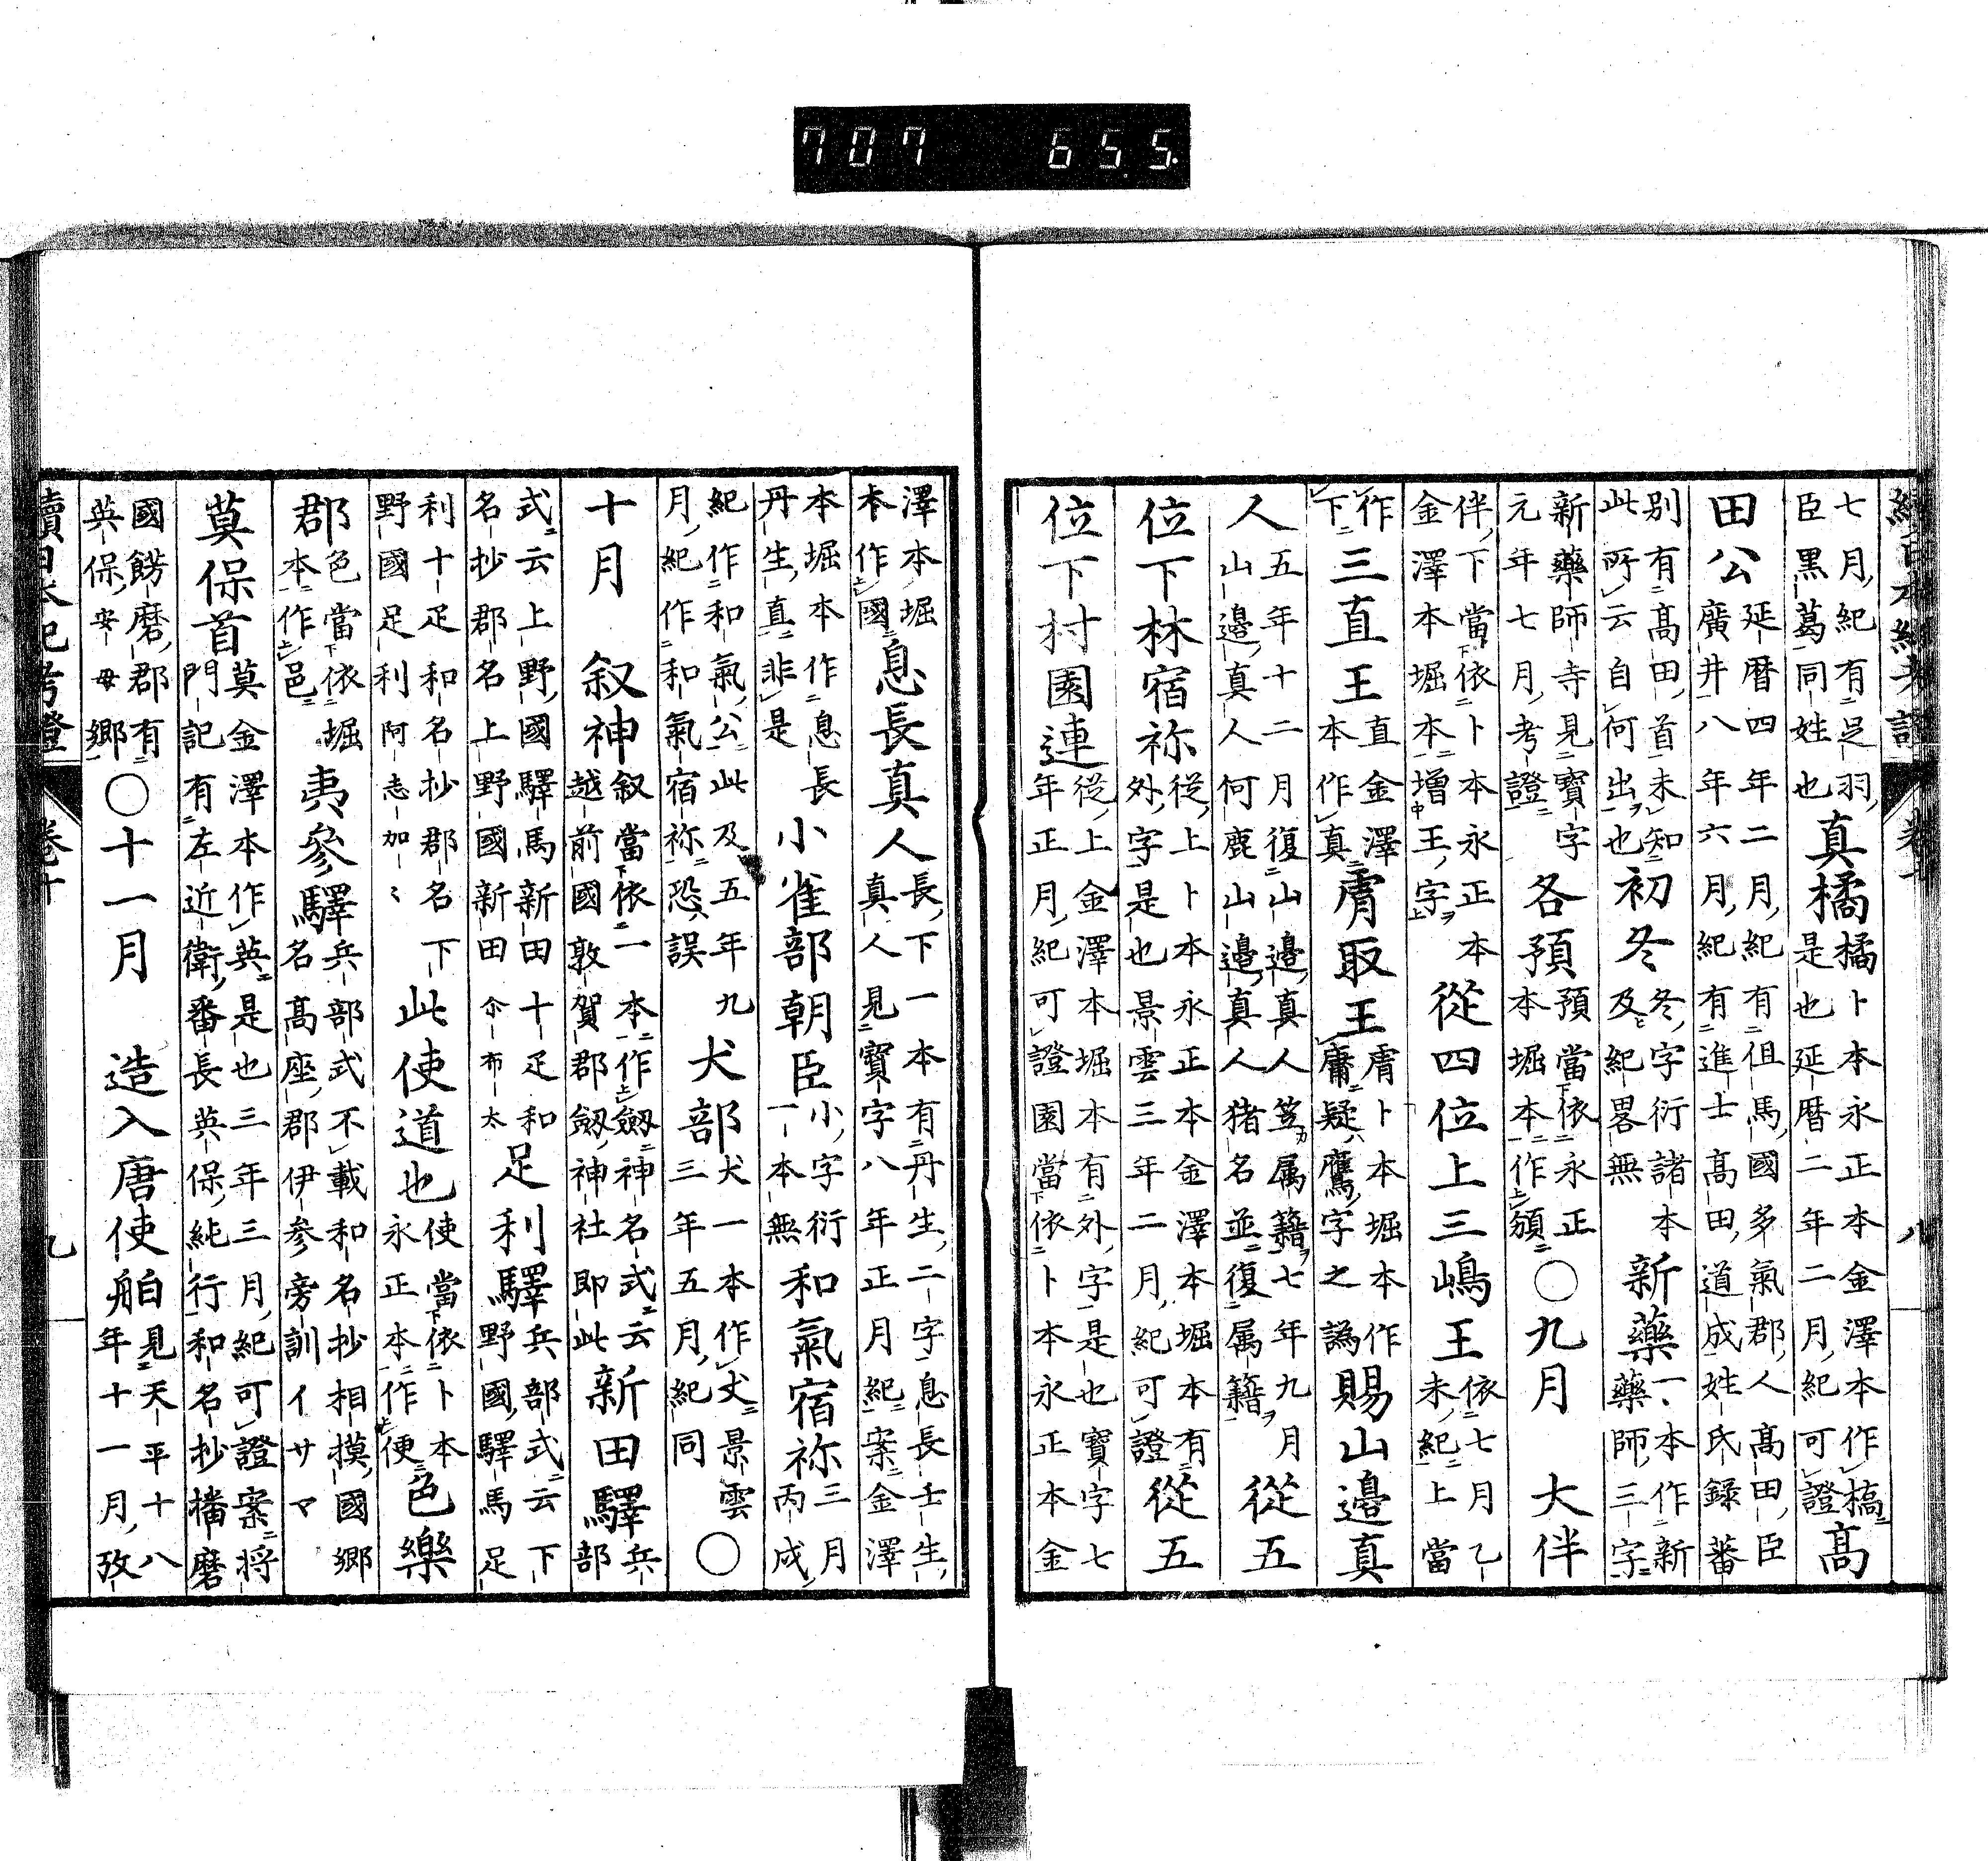 707 655.
續日本紀考證 卷十 八
七月紀有足羽臣黑葛同姓也 真橘 橘卜本永正本金澤本作槁是也延曆二年二月紀可證 高
田公 延曆四年二月紀有但馬國多氣郡人高田臣廣井八年六月紀有進士高田道成姓氏錄蕃
別有高田首未知此所云自何出也 初冬 冬字衍諸本及紀畧無 新藥 一本作新藥師三字
新藥師寺見寶字元年七月考證 各預 預當依永正本堀本作頒 ○九月 大伴
伴下當依卜本永正本金澤本堀本增王字 從四位上三嶋王 依七月乙未紀上當
作下 三直王 直金澤本作真 膚取王 膚卜本堀本作庸疑鷹字之譌 賜山邊真
人 五年十二月復山邊真人笠属籍七年九月山邊真人何鹿山邊真人猪名並復属籍 從五
位下林宿祢 從上卜本永正本金澤本堀本有外字是也景雲三年二月紀可證 從五
位下村園連 從上金澤本堀本有外字是也寶字七年正月紀可證園當依卜本永正本金
澤本堀本作國 息長真人 長下一本有丹生二字息長壬生真人見寶字八年正月紀案金澤
本堀本作息長丹生真非是 小雀部朝臣 小字衍一本無 和氣宿祢 三月丙戌
紀作和氣公此及五年九月紀作和氣宿祢恐誤 犬部 犬一本作丈景雲三年五月紀同 ○
十月 叙神 叙當依一本作劔神名式云越前國敦賀郡劔神社即此 新田驛 兵部
式云上野國驛馬新田十疋和名抄郡名上野國新田尒布太 足利驛 兵部式云下野國驛馬足
利十疋和名抄郡名下野國足利阿志加〻 此使道也 使當依卜本永正本作便 色樂
郡 色當依堀本作邑 夷參驛 兵部式不載和名抄相摸國鄉名高座郡伊參旁訓イサマ
莫保首 莫金澤本作英是也三年三月紀可證案將門記有左近衛番長英保純行和名抄播磨
國餝磨郡有英保安母鄉 ○十一月 造入唐使舶 見天平十八年十一月攷
續日本紀考證 卷十 乙